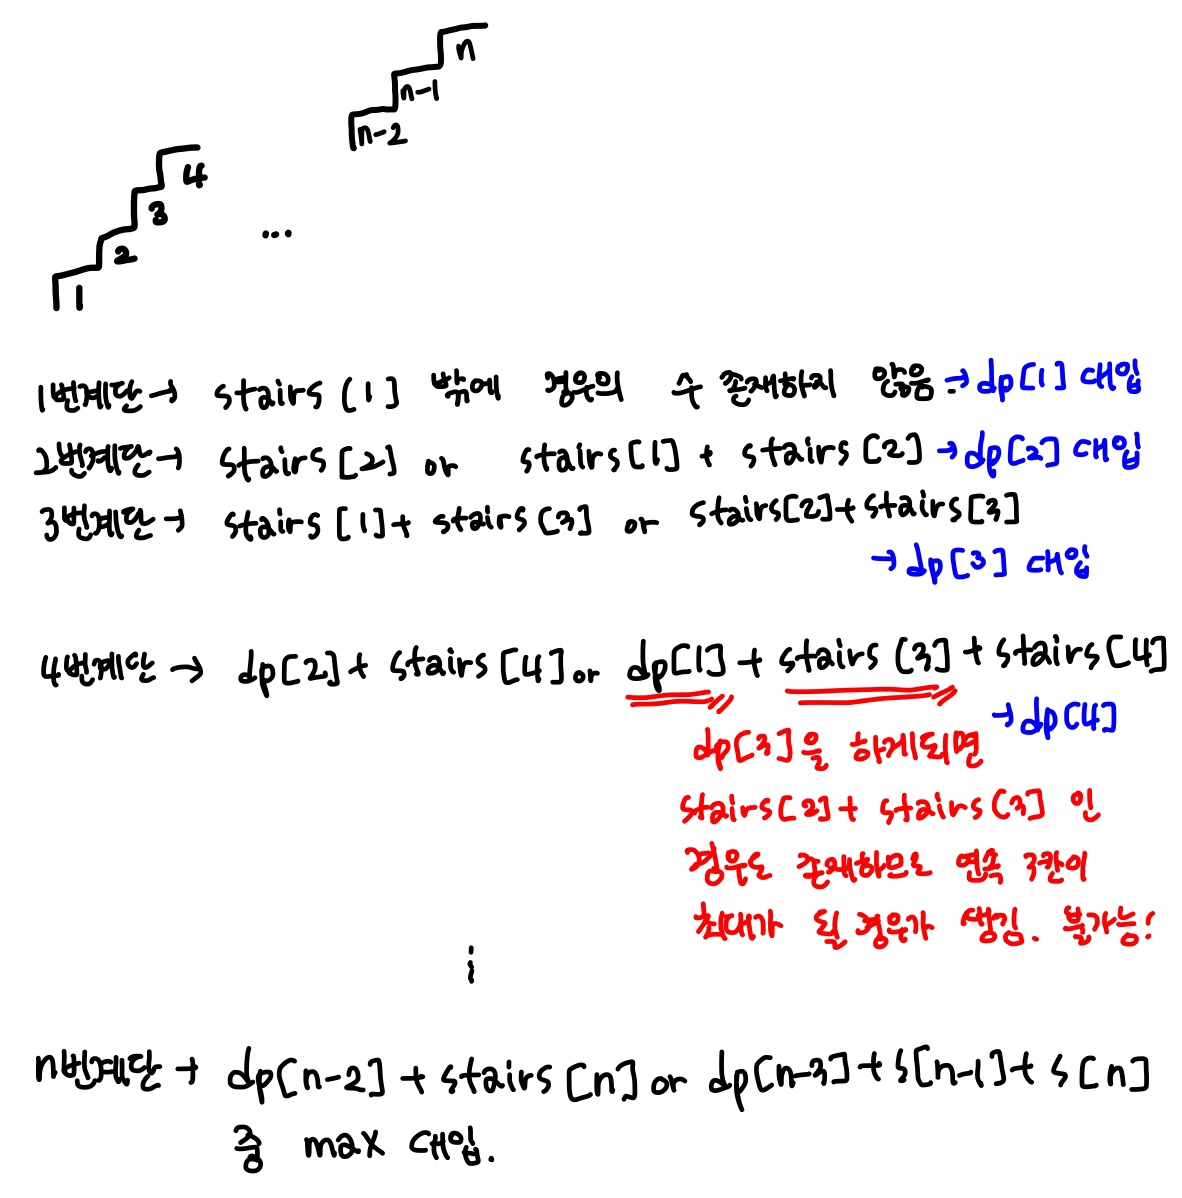 n
n-1
n-2
4
3
2
1
...
1번계단→ stairs[1] 밖에 경우의 수 존재하지 않음.→dp[1] 대입
2번계단→ stairs[2] or stairs[1] + stairs[2]→dp[2] 대입
3번계단→ stairs[1]+ stairs[3] or stairs[2]+stairs[3]
→dp[3] 대입
4번계단→ dp[2]+ stairs[4] or dp[1] + stairs[3]+ stairs[4]
→dp[4]
dp[3]을 하게되면
stairs[2]+ stairs[3] 인
경우도 존재하므로 연속 3칸이
최대가 될 경우가 생김. 불가능!
n번계단→ dp[n-2] + stairs[n] or dp[n-3]+s[n-1]+ s[n]
중 max 대입.